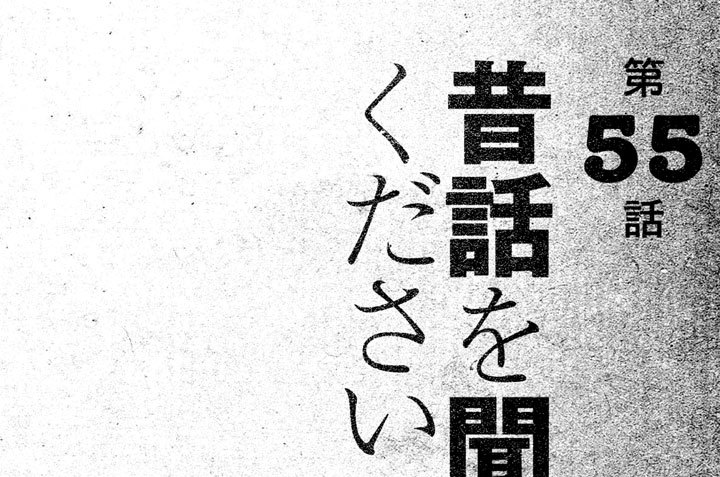 第55話
昔話を聞
ください